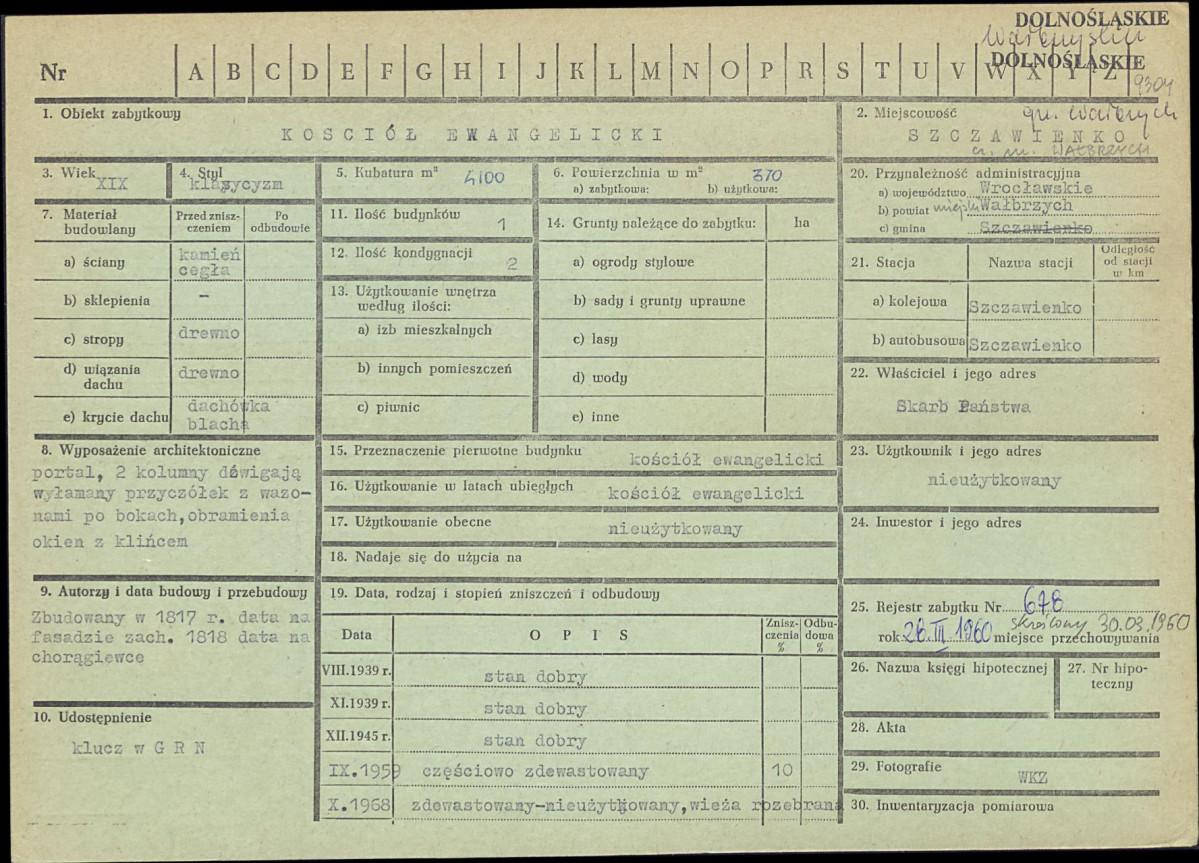 DOLNOŚLĄSKIE
DOLNOŚLĄSKIE
Nr A B C D E F G H I J K L M N O P R S T U V W X Y Z
9304
1. Obiekt zabytkowy
KOSCIÓŁ EWANGELICKI
2. Miejscowość
SZCZAWIENKO
WAŁBRZYCH
3. Wiek XIX
4. Styl
klasycyzm
5. Kubatura m³ 4100
6. Powierzchnia w m² 370
a) zabytkowa: b) użytkowa:
20. Przynależność administracyjna
a) województwo Wrocławskie
b) powiat miejski Wałbrzych
c) gmina Szczawienko
7. Materiał budowlany
Przed zniszczeniem
Po odbudowie
a) ściany kamień
cegła
b) sklepienia –
c) stropy drewno
d) wiązania dachu drewno
e) krycie dachu dachówka
blacha
11. Ilość budynków 1
12. Ilość kondygnacji 2
13. Użytkowanie wnętrza
według ilości:
a) izb mieszkalnych
b) innych pomieszczeń
c) piwnic
14. Grunty należące do zabytku: ha
a) ogrody stylowe
b) sady i grunty uprawne
c) lasy
d) wody
e) inne
21. Stacja Nazwa stacji Odległość od stacji w km
a) kolejowa Szczawienko
b) autobusowa Szczawienko
22. Właściciel i jego adres
Skarb Państwa
8. Wyposażenie architektoniczne
portal, 2 kolumny dźwigają
wyłamany przyczółek z wazo-
nami po bokach,obramienia
okien z klińcem
15. Przeznaczenie pierwotne budynku kościół ewangelicki
16. Użytkowanie w latach ubiegłych kościół ewangelicki
17. Użytkowanie obecne nieużytkowany
18. Nadaje się do użycia na
23. Użytkownik i jego adres
nieużytkowany
24. Inwestor i jego adres
9. Autorzy i data budowy i przebudowy
Zbudowany w 1817 r. data na
fasadzie zach. 1818 data na
chorągiewce
10. Udostępnienie
klucz w G R N
19. Data, rodzaj i stopień zniszczeń i odbudowy
Data OPIS Znisz-czenia % Odbu-dowa %
VIII.1939 r. stan dobry
XI.1939 r. stan dobry
XII.1945 r. stan dobry
IX.1959 częściowo zdewastowany 10
X.1968 zdewastowany-nieużytkowany,wieża rozebrana
25. Rejestr zabytku Nr 678
skreślony 30.03.1960
rok 26.III 1960 miejsce przechowywania
26. Nazwa księgi hipotecznej
27. Nr hipo-
teczny
28. Akta
29. Fotografie WKZ
30. Inwentaryzacja pomiarowa